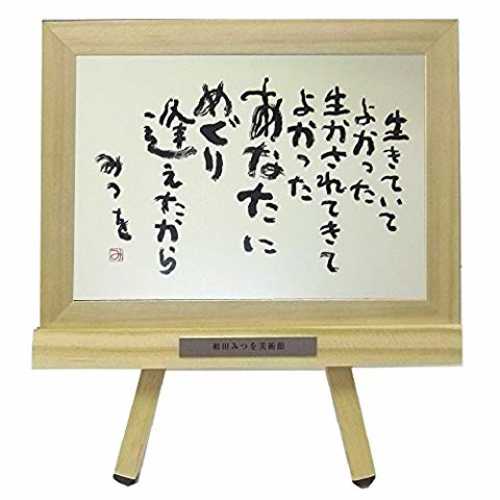 生きていて
よかった
生かされてきて
よかった
あなたに
めぐり
逢えたから
みつを
み
相田みつを美術館